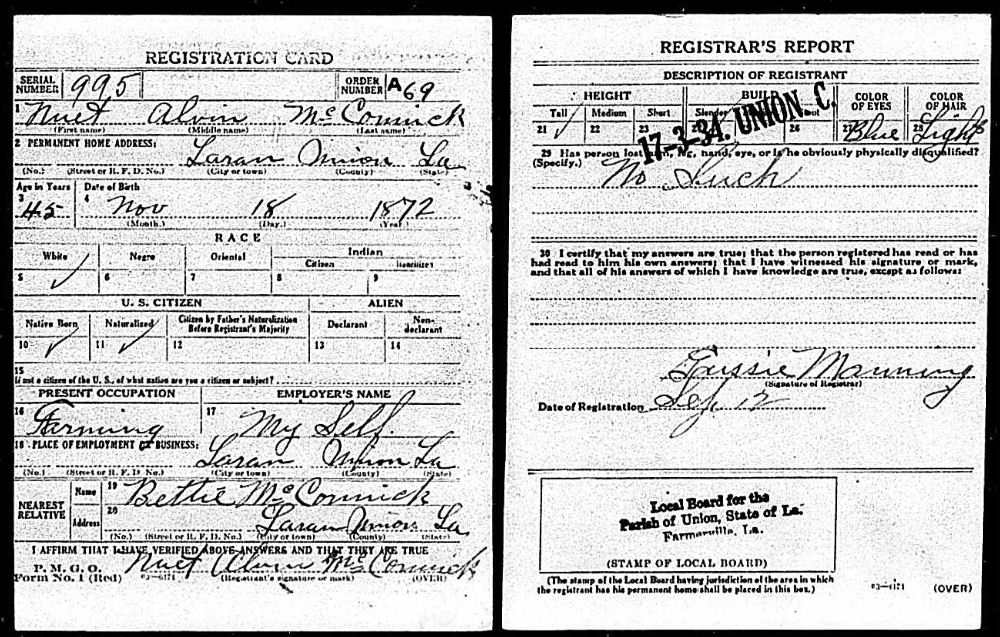 REGISTRATION CARD
SERIAL NUMBER 995
ORDER NUMBER A69
1 Nuet Alvin McCormick
(First name) (Middle name) (Last name)
2 PERMANENT HOME ADDRESS:
Laran Union La
(No.) (Street or R. F. D. No.) (City or town) (County) (State)
Age in Years Date of Birth
3 45 4 Nov 18 1872
(Month.) (Day.) (Year.)
RACE
White Negro Oriental Indian
Citizen Noncitizen
5 ✓ 6 7 8 9
U. S. CITIZEN ALIEN
Native Born Naturalized Citizen by Father's Naturalization Before Registrant's Majority Declarant Non-declarant
10 ✓ 11 ✓ 12 13 14
15
If not a citizen of the U. S., of what nation are you a citizen or subject?
PRESENT OCCUPATION EMPLOYER'S NAME
16 Farming 17 My Self.
18 PLACE OF EMPLOYMENT OR BUSINESS:
Laran Union La
(No.) (Street or R. F. D. No.) (City or town) (County) (State)
NEAREST RELATIVE
Name 19 Bettie McCormick
Address 20 Laran Union La
(No.) (Street or R. F. D. No.) (City or town) (County) (State)
I AFFIRM THAT I HAVE VERIFIED ABOVE ANSWERS AND THAT THEY ARE TRUE
P. M. G. O.
Form No. 1 (Red) 03—6171 Nuet Alvin McCormick
(Registrant's signature or mark) (OVER)
REGISTRAR'S REPORT
DESCRIPTION OF REGISTRANT
HEIGHT BUILD COLOR OF EYES COLOR OF HAIR
Tall Medium Short Slender
21 ✓ 22 23 26 27 Blue 28 Light
17-3-34. UNION. C.
29 Has person lost arm, leg, hand, eye, or is he obviously physically disqualified?
(Specify.)
No Such
30 I certify that my answers are true; that the person registered has read or has
had read to him his own answers; that I have witnessed his signature or mark,
and that all of his answers of which I have knowledge are true, except as follows:
Manning
(Signature of Registrar)
Date of Registration Sep 12
Local Board for the
Parish of Union, State of La.
Farmerville, La.
(STAMP OF LOCAL BOARD)
(The stamp of the Local Board having jurisdiction of the area in which
the registrant has his permanent home shall be placed in this box.)
03—6171 (OVER)